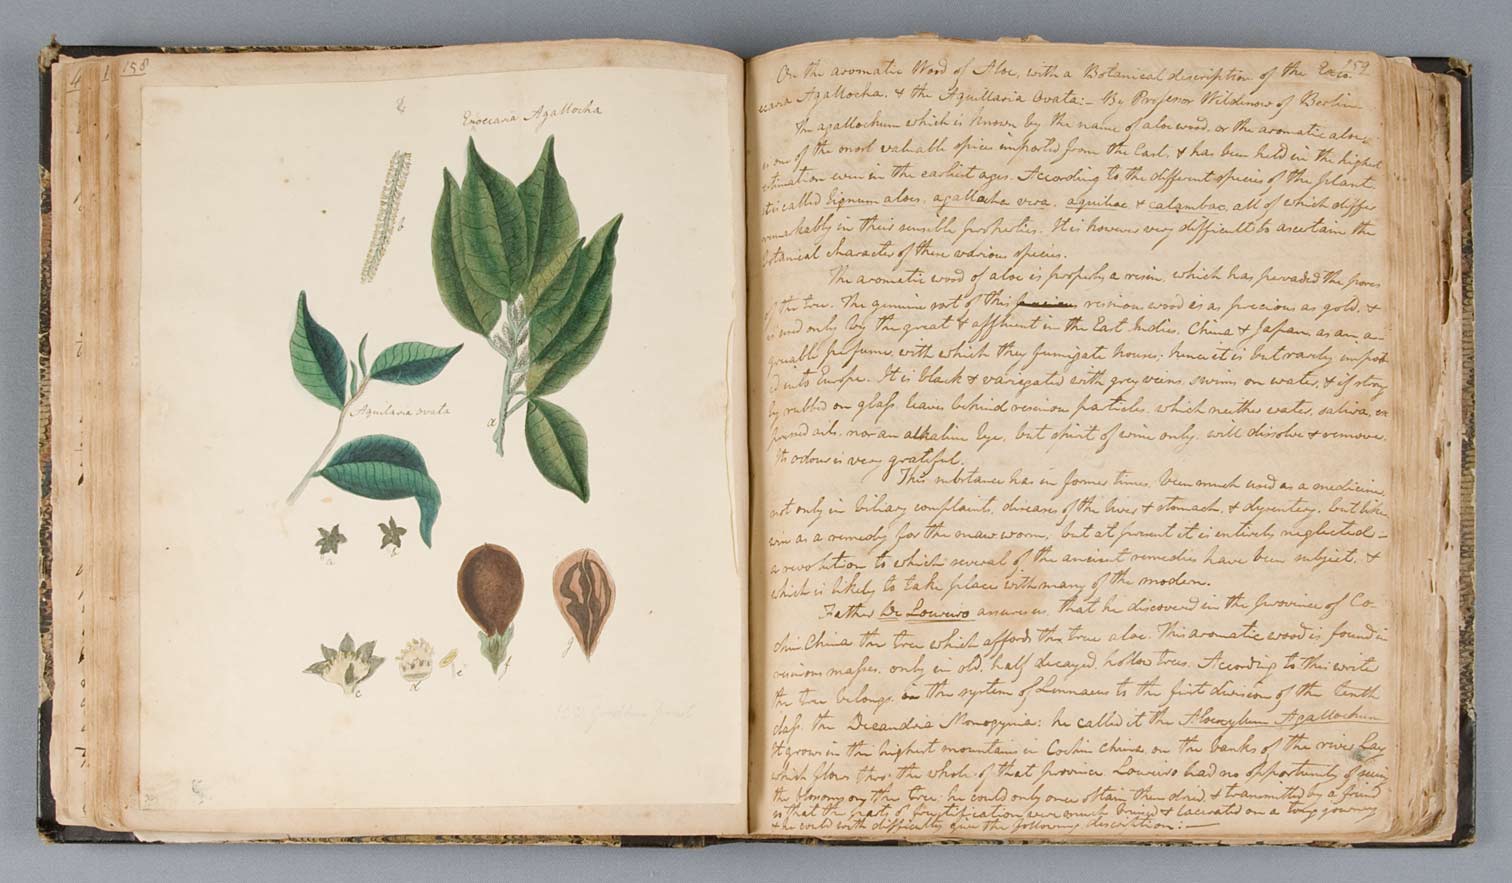 158
2
Exoecaria Agallocha
a
a
Aquilaria ovata
a
b
c
d
e
f
g
159
On the aromatic Wood of Aloe, with a Botanical description of the Exco-
ecaria Agallocha, & the Aquillaria Ovata:- By Profesor Wildenow of Berlin
The agallochum which is known by the name of aloe wood, or the aromatic aloe,
is one of the most valuable spices imported from the East, & has been held in the highest
estimation even in the earliest ages. According to the different species of the plant,
it is called lignum aloes, agallocha vera, aquilae & calambac, all of which differ
remarkably in their sensible properties. It is however very difficult to ascertain the
botanical character of these various species.
The aromatic wood of aloe is properly a resin, which has pervaded the pores
of the tree. The genuine root of this resinous wood is as precious as gold, &
is used only by the great & affluent in the East Indies, China & Japan, as an a-
greeable perfume, with which they fumigate houses; hence it is but rarely import
ed into Europe. It is black & variegated with grey veins, swims on water, & if strong
ly rubbed on glass, leaves behind resinous particles, which neither water, saliva, ex
pressed oils, nor an alkaline lye, but spirit of wine only, will dissolve & remove.
Its odour is very grateful.
This substance has in former times been much used as a medicine,
not only in biliary complaints, diseases of the liver & stomach, & dysentery, but like
wise as a remedy for the maw worm, but at present it is entirely neglected -
a revolution to which several of the ancient remedies have been subject, &
which is likely to take place with many of the modern.
Father De Loureiro assures us, that he discovered in the province of Co-
chin China the tree which affords the true aloe. This aromatic wood is found in
resinous masses, only in old, half decayed, hollow trees. According to this write
the tree belongs in the system of Linnaeus to the first division of the tenth
class, the Decandria Monogynia: he called it the Aloexylum Agallochum
It grows in the highest mountains in Cochin china, on the banks of the river Lay
which flows thro' the whole of that province Loureiro had no opportunity of seeing
the blossoms on the tree; he could only once obtain them dried, & transmitted by a friend
so that the parts of fructification were much bruised & lacerated on a long journey
& he could with difficulty give the following description:-